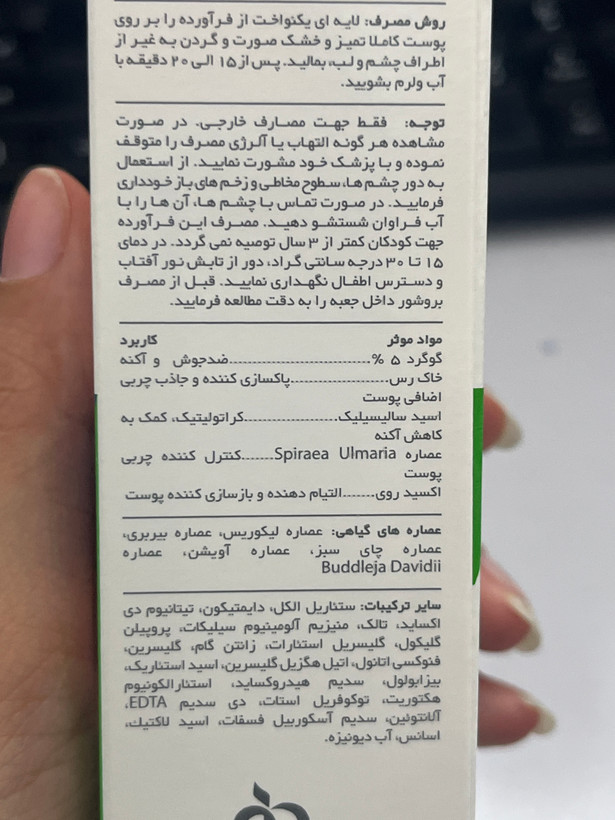 روش مصرف: لایه ای یکنواخت از فرآورده را بر روی
پوست کاملا تمیز و خشک صورت و گردن به غیر از
اطراف چشم و لب، بمالید. پس از ۱۵ الی ۲۰ دقیقه با
آب ولرم بشویید.
توجه: فقط جهت مصارف خارجی. در صورت
مشاهده هر گونه التهاب یا آلرژی مصرف را متوقف
نموده و با پزشک خود مشورت نمایید. از استعمال
به دور چشم ها، سطوح مخاطی و زخم های باز خودداری
فرمایید. در صورت تماس با چشم ها، آن ها را با
آب فراوان شستشو دهید. مصرف این فرآورده
جهت کودکان کمتر از ۳ سال توصیه نمی گردد. در دمای
۱۵ تا ۳۰ درجه سانتی گراد، دور از تابش نور آفتاب
و دسترس اطفال نگهداری نمایید. قبل از مصرف
بروشور داخل جعبه را به دقت مطالعه فرمایید.
مواد موثر کاربرد
گوگرد ۵ %......................ضدجوش و آکنه
خاک رس...............پاکسازی کننده و جاذب چربی
اضافی پوست
اسید سالیسیلیک...............کراتولیتیک، کمک به
کاهش آکنه
عصاره Spiraea Ulmaria.......کنترل کننده چربی
پوست
اکسید روی.......التیام دهنده و بازسازی کننده پوست
عصاره های گیاهی: عصاره لیکوریس، عصاره بیربری،
عصاره چای سبز، عصاره آویشن، عصاره
Buddleja Davidii
سایر ترکیبات: ستئاریل الکل، دایمتیکون، تیتانیوم دی
اکساید، تالک، منیزیم آلومینیوم سیلیکات، پروپیلن
گلیکول، گلیسریل استئارات، زانتن گام، گلیسرین،
فنوکسی اتانول، اتیل هگزیل گلیسرین، اسید استئاریک،
بیزابولول، سدیم هیدروکساید، استئارالکونیوم
هکتوریت، توکوفریل استات، دی سدیم EDTA،
آلانتوئین، سدیم آسکوربیل فسفات، اسید لاکتیک،
اسانس، آب دیونیزه.